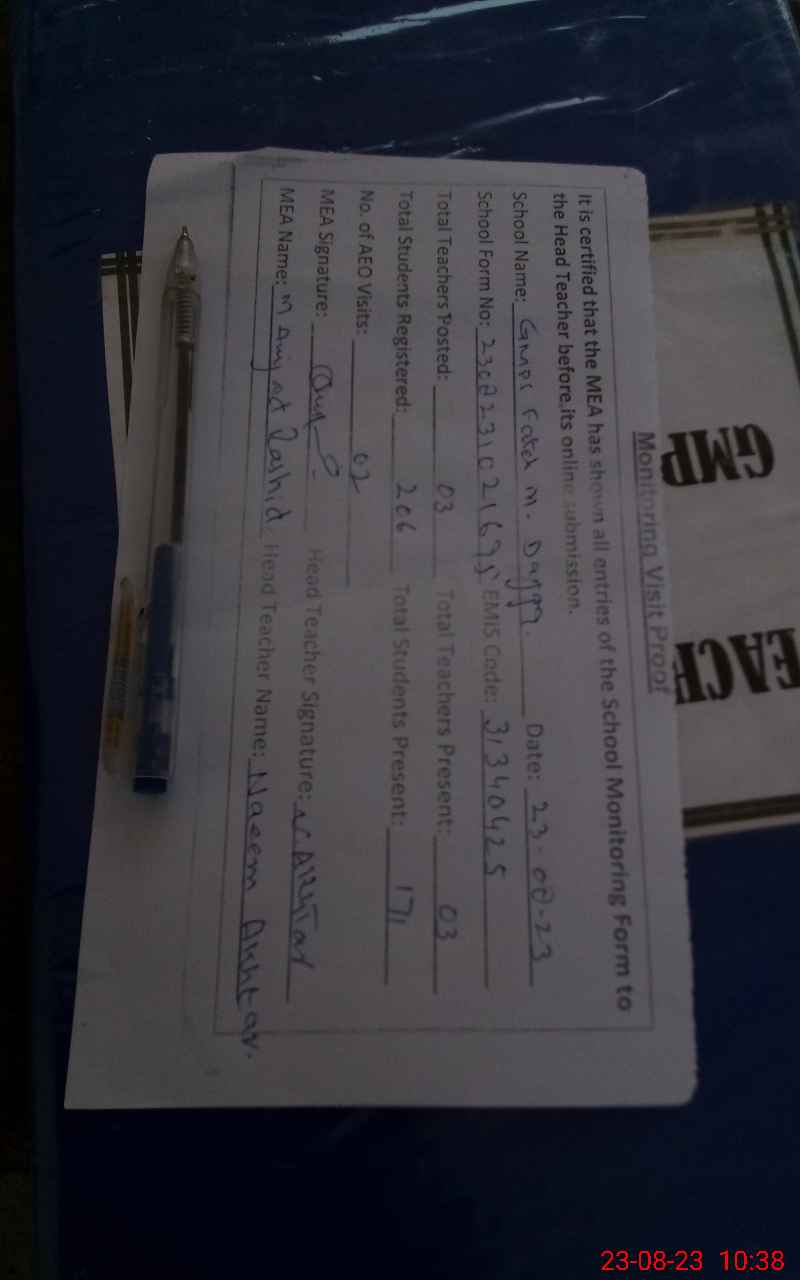 GMP
EACH
Monitoring Visit Proof
It is certified that the MEA has shown all entries of the School Monitoring Form to
the Head Teacher before its online submission.
School Name: GMPS Fateh M. Dagga. Date: 23-08-23
School Form No: EMIS Code: 31340425
Total Teachers Posted: 03 Total Teachers Present: 03
Total Students Registered: 206 Total Students Present: 171
No. of AEO Visits: 02
MEA Signature: Head Teacher Signature: N.Akhtar
MEA Name: M Amjad Rashid Head Teacher Name: Naeem Akhtar.
23-08-23 10:38